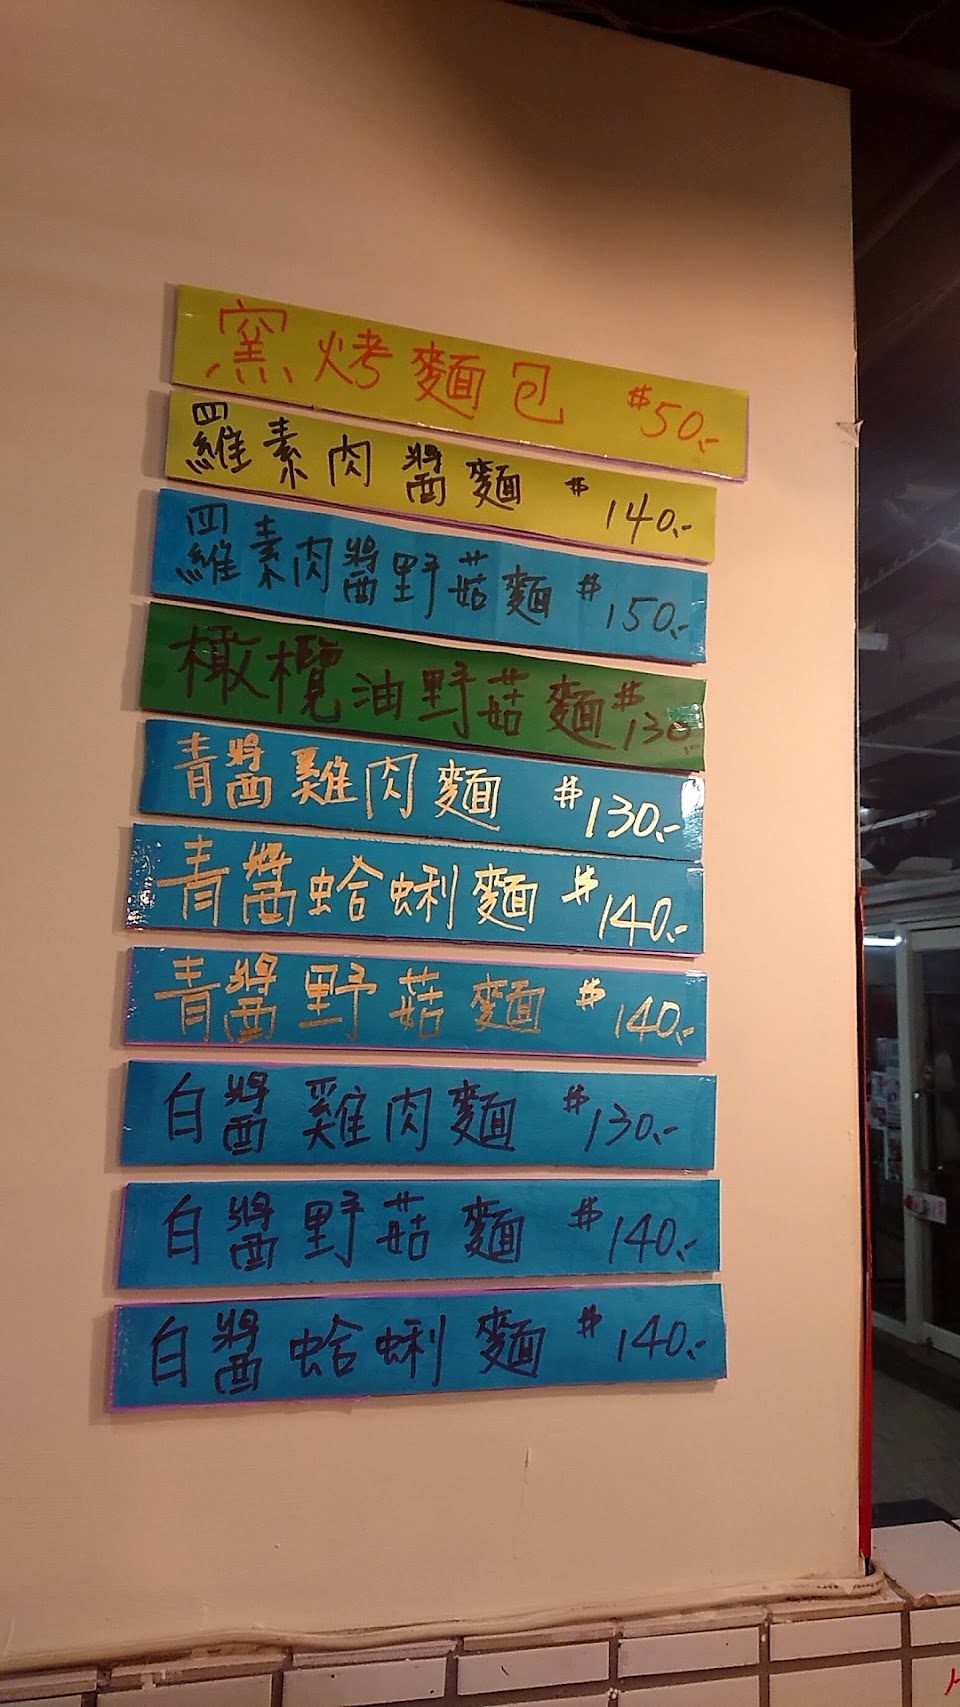 窯烤麵包 $50.-
羅素肉醬麵 $140.-
羅素肉醬野菇麵 $150.-
橄欖油野菇麵 $130.-
青醬雞肉麵 $130.-
青醬蛤蜊麵 $140.-
青醬野菇麵 $140.-
白醬雞肉麵 $130.-
白醬野菇麵 $140.-
白醬蛤蜊麵 $140.-